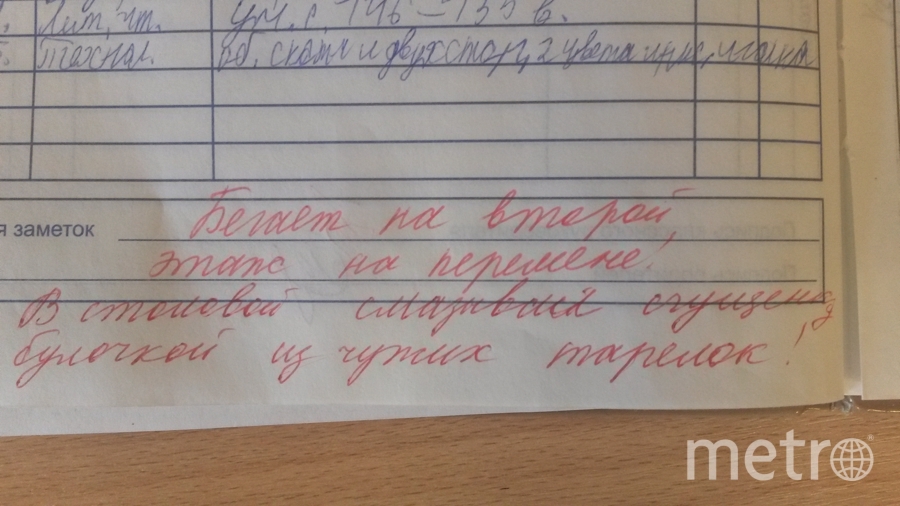 Лит. чт.
уч. с. 146-155 в.
Технол.
об. скотч и двухстор, 2 цвета
я заметок
Бегает на второй
этаж на перемене!
В столовой смазывает сгущенку
булочкой из чужих тарелок!
metro